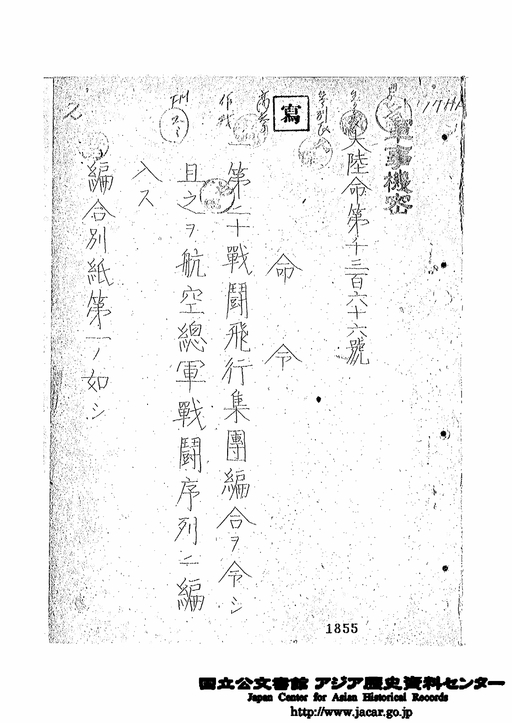 軍事機密
大陸命第千三百六十六號
寫
命令
一 第二十戰鬪飛行集團編合ヲ令シ
且之ヲ航空總軍戰鬪序列ニ編
入ス
編合別紙第一ノ如シ
1855
国立公文書館 アジア歴史資料センター
Japan Center for Asian Historical Records
http://www.jacar.go.jp